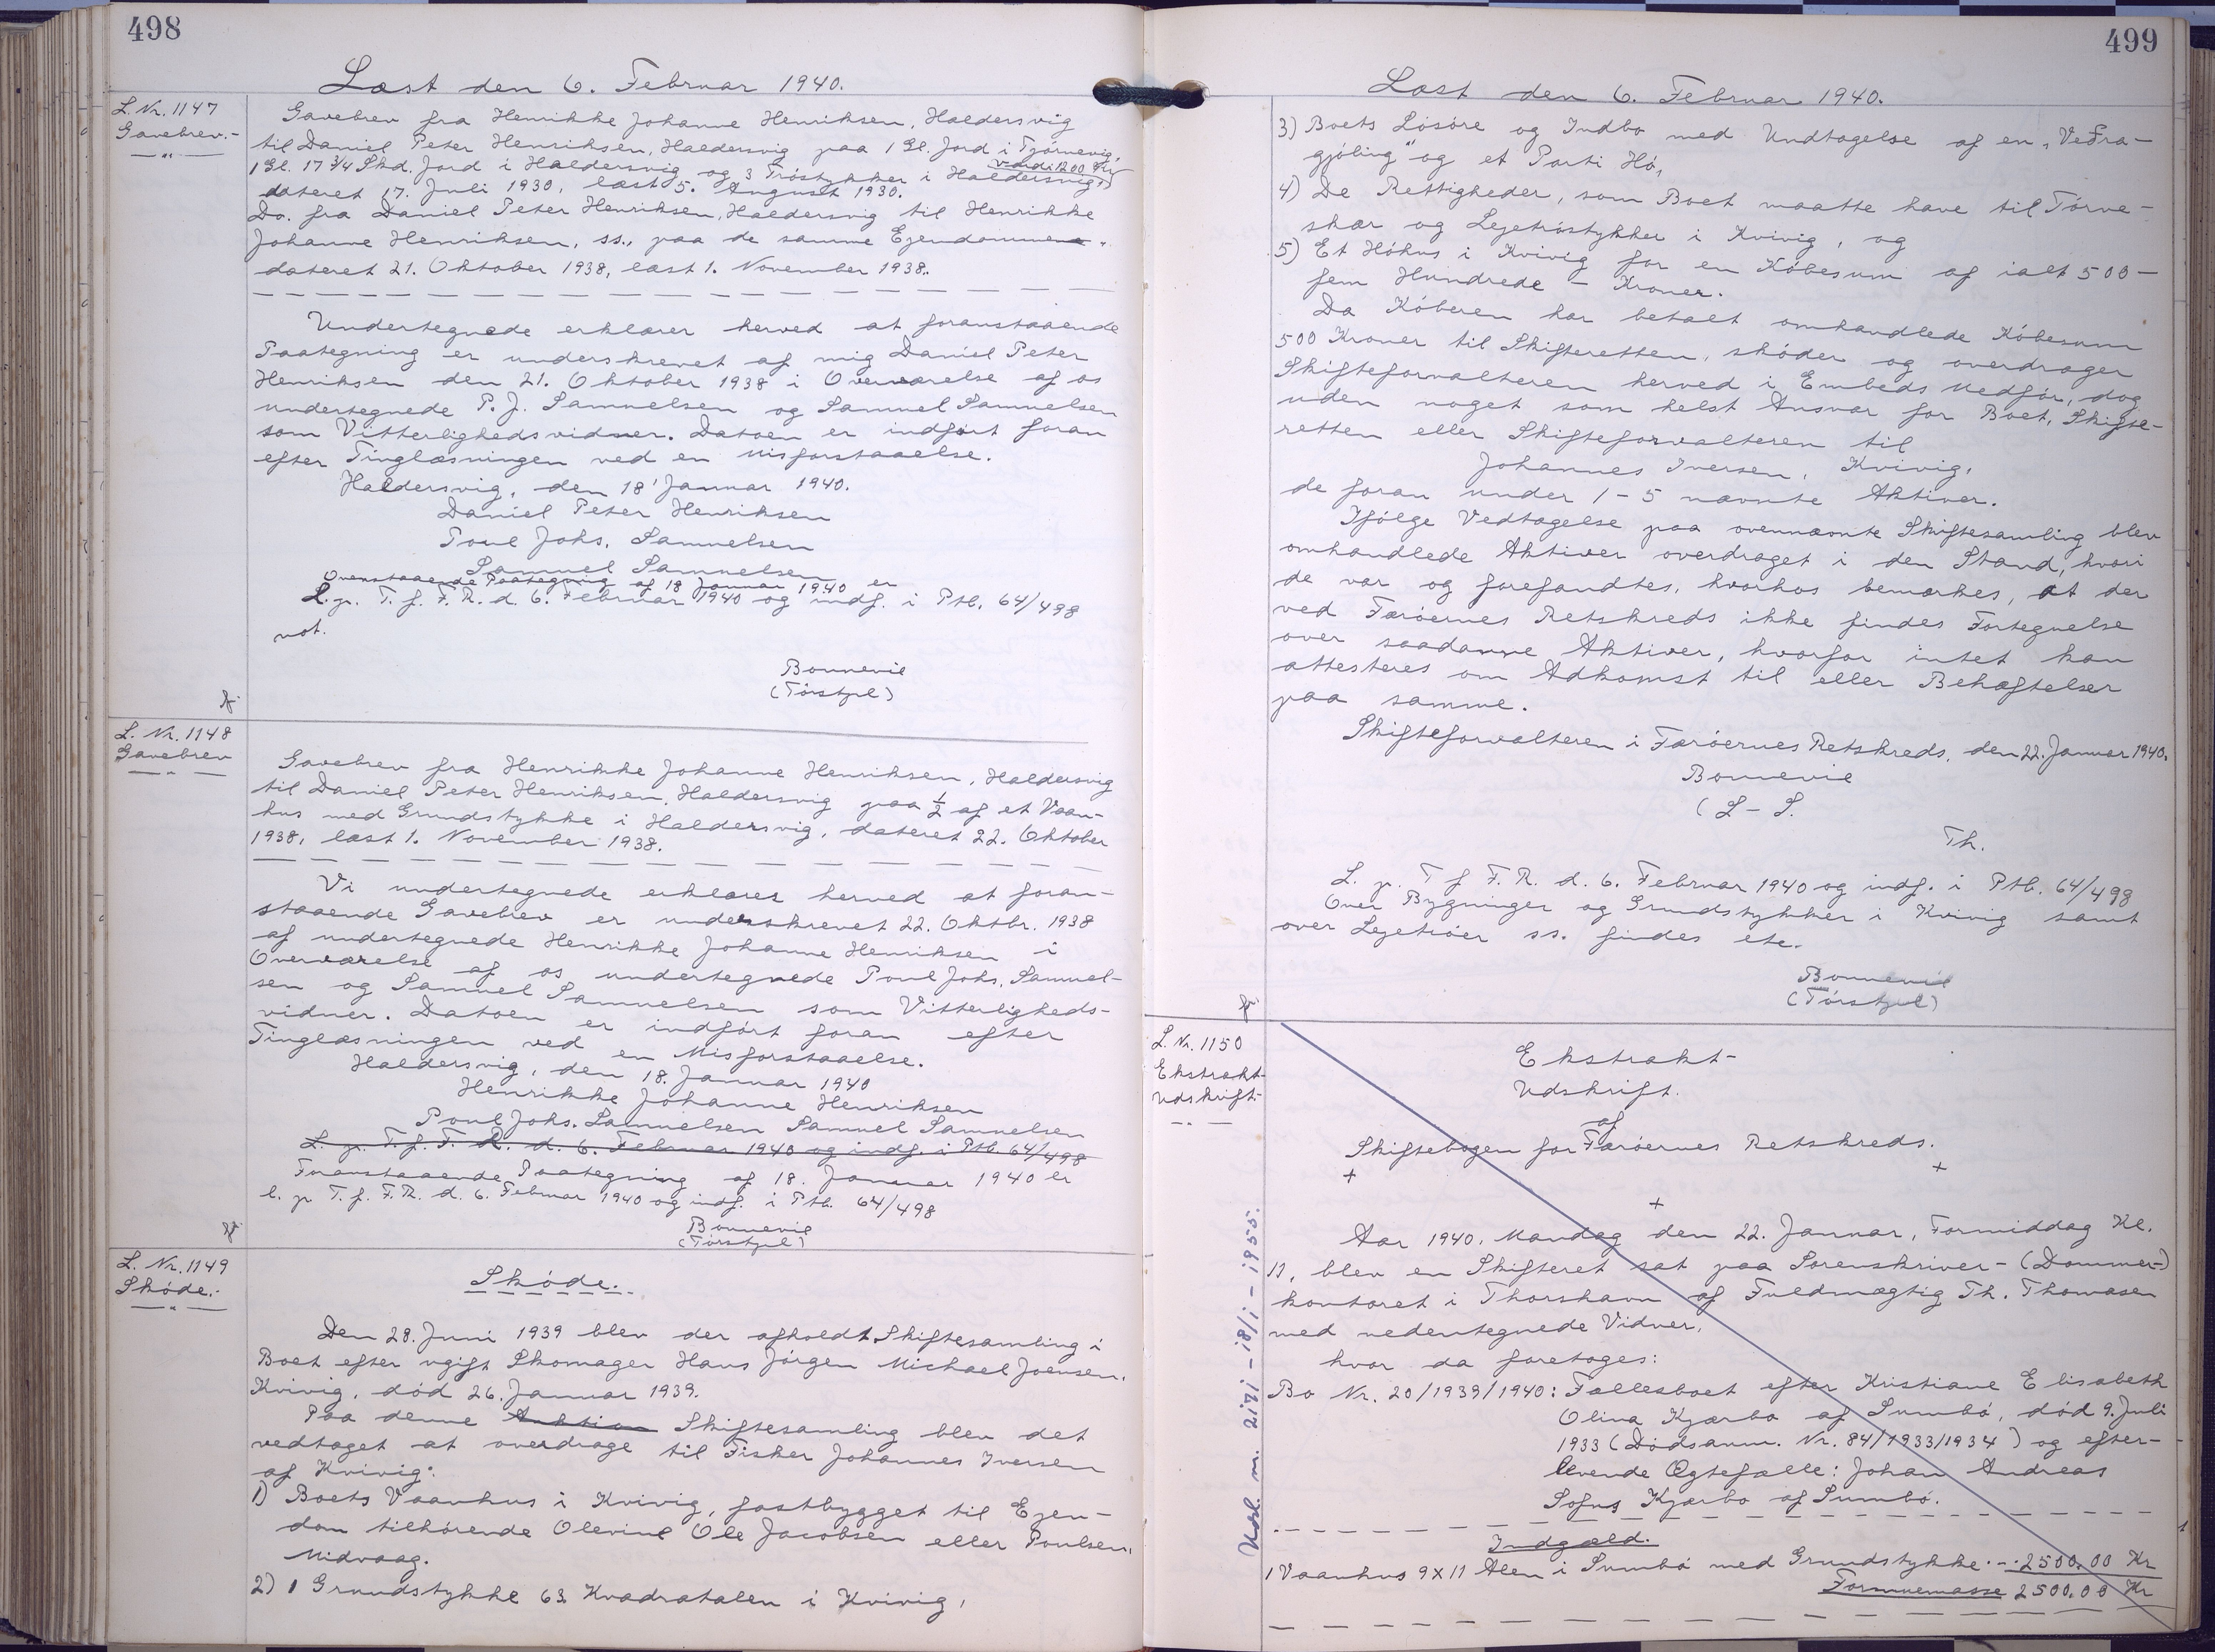 498
Læst den 6. Februar 1940.
L. Nr. 1147
Gavebrev.-
Gavebrev fra Henrikke Johanne Henriksen, Haldersvig
til Daniel Peter Henriksen, Haldersvig paa 1 Gl. Jord i Tjørnevig,
1 Gl. 17 3/4 Skd. Jord i Haldersvig og 3 Trøstykker i Haldersvig,
værdi 1200 Kr
dateret 17. Juli 1930, læst 5. August 1930.
Do. fra Daniel Peter Henriksen, Haldersvig til Henrikke
Johanne Henriksen, ss., paa de samme Ejendomme
dateret 21. Oktober 1938, læst 1. November 1938.
Undertegnede erklærer herved at foranstaaende
Paategning er underskrevet af mig Daniel Peter
Henriksen den 21. Oktober 1938 i Overværelse af os
undertegnede P. J. Samuelsen og Samuel Samuelsen
som Vitterlighedsvidner. Datoen er indført foran
efter Tinglæsningen ved en Misforstaaelse.
Haldersvig, den 18' Januar 1940.
Daniel Peter Henriksen
Poul Johs. Samuelsen
Samuel Samuelsen
Ovenstaaende Paategning af 18 Januar 1940 er
L. p. T. f. F. R. d. 6. Februar 1940 og indf. i Ptb. 64/498
not.
Bonnevie
(Tórstjul)
L. Nr. 1148
Gavebrev
Gavebrev fra Henrikke Johanne Henriksen, Haldersvig
til Daniel Peter Henriksen, Haldersvig paa 1/2 af et Vaan-
hus med Grundstykke i Haldersvig, dateret 22. Oktober
1938, læst 1. November 1938.
Vi undertegnede erklærer herved at foran-
staaende Gavebrev er underskrevet 22. Oktbr. 1938
af undertegnede Henrikke Johanne Henriksen i
Overværelse af os undertegnede Poul Johs. Samuel-
sen og Samuel Samuelsen som Vitterligheds-
vidner. Datoen er indført foran efter
Tinglæsningen ved en Misforstaaelse.
Haldersvig, den 18. Januar 1940
Henrikke Johanne Henriksen
Poul Johs. Samuelsen Samuel Samuelsen
L. p. T. f. F. R. d. 6. Februar 1940 og indf. i Ptb. 64/498
Foranstaaende Paategning af 18. Januar 1940 er
l. p. T. f. F.R. d. 6. Februar 1940 og indf. i Ptb. 64/498
Bonnevie
(Tórstjul)
L. Nr. 1149
Skøde.-
Skøde.
Den 28. Juni 1939 blev der afholdt Skiftesamling i
Boet efter ugift Skomager Hans Jørgen Michael Joensen,
Kvivig, død 26. Januar 1939.
Paa denne Auktion Skiftesamling blev det
vedtaget at overdrage til Fisker Johannes Iversen
af Kvivig:
1) Boets Vaanhus i Kvivig, fastbygget til Ejen-
dom tilhørende Olevine Ole Jacobsen eller Poulsen,
Midvaag.
2) 1 Grundstykke 63 Kvadratalen i Kvivig,
499
Læst den 6. Februar 1940.
3) Boets Løsøre og Indbo med Undtagelse af en „Veðra-
gjøling" og et Parti Hø,
4) De Rettigheder, som Boet maatte have til Tørve-
skær og Lejetrøstykker i Kvivig, og
5) Et Høhus i Kvivig for en Købesum af ialt 500 -
fem Hundrede - Kroner.
Da Køberen har betalt omhandlede Købesum
500 Kroner til Skifteretten, skøder og overdrager
Skifteforvalteren herved i Embeds Medfør, dog
uden noget som helst Ansvar for Boet, Skifte-
retten eller Skifteforvalteren til
Johannes Iversen, Kvivig,
de foran under 1 - 5 nævnte Aktiver.
Ifølge Vedtagelse paa ovennævnte Skiftesamling blev
omhandlede Aktiver overdraget i den Stand, hvori
de var og forefandtes, hvorhos bemærkes, at der
ved Færøernes Retskreds ikke findes Fortegnelse
over saadanne Aktiver, hvorfor intet kan
attesteres om Adkomst til eller Behæftelser
paa samme.
Skifteforvalteren i Færøernes Retskreds, den 22. Januar 1940.
Bonnevie
(L - S.
Th.
L. p. T f F. R. d. 6. Februar 1940 og indf. i Ptb. 64/498
Over Bygninger og Grundstykker i Kvivig samt
over Lejetrøer ss. findes etc.
Bonnevie
(Tórstjul)
L. Nr. 1150
Ekstrakt-
Udskrift-
Ekstrakt-
Udskrift.
af
Skiftebogen for Færøernes Retskreds.
Aar 1940, Mandag den 22. Januar, Formiddag Kl.
11, blev en Skifteret sat paa Sorenskriver- (Dommer-)
kontoret i Thorshavn af Fuldmægtig Th. Thomasen
med nedentegnede Vidner,
hvor da foretoges:
Bo Nr. 20/1939/1940: Fællesboet efter Kristiane Elisabeth
Olina Kjærbo af Sumbø, død 9. Juli
1933 (Dødsanm. Nr. 84/1933/1934) og efter-
levende Ægtefælle: Johan Andreas
Sofus Kjærbo af Sumbø.
Indgæld.
1 Vaanhus 9 x 11 Alen i Sumbø med Grundstykke. -. 2500,00 Kr
Formuemasse 2500,00 Kr
Udsl. m. 2171 - 18/1 - 1955.